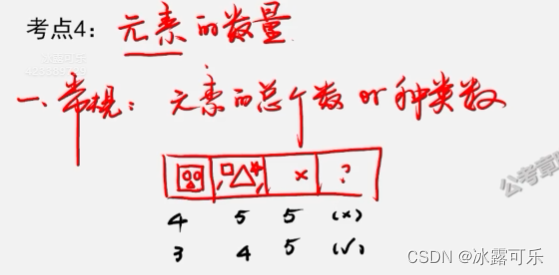 考点4：元素的数量
一、常规：元素的总个数 or 种类数
× ?
4 5 5 (×)
3 4 5 (√)
公考章
CSDN @冰露可乐